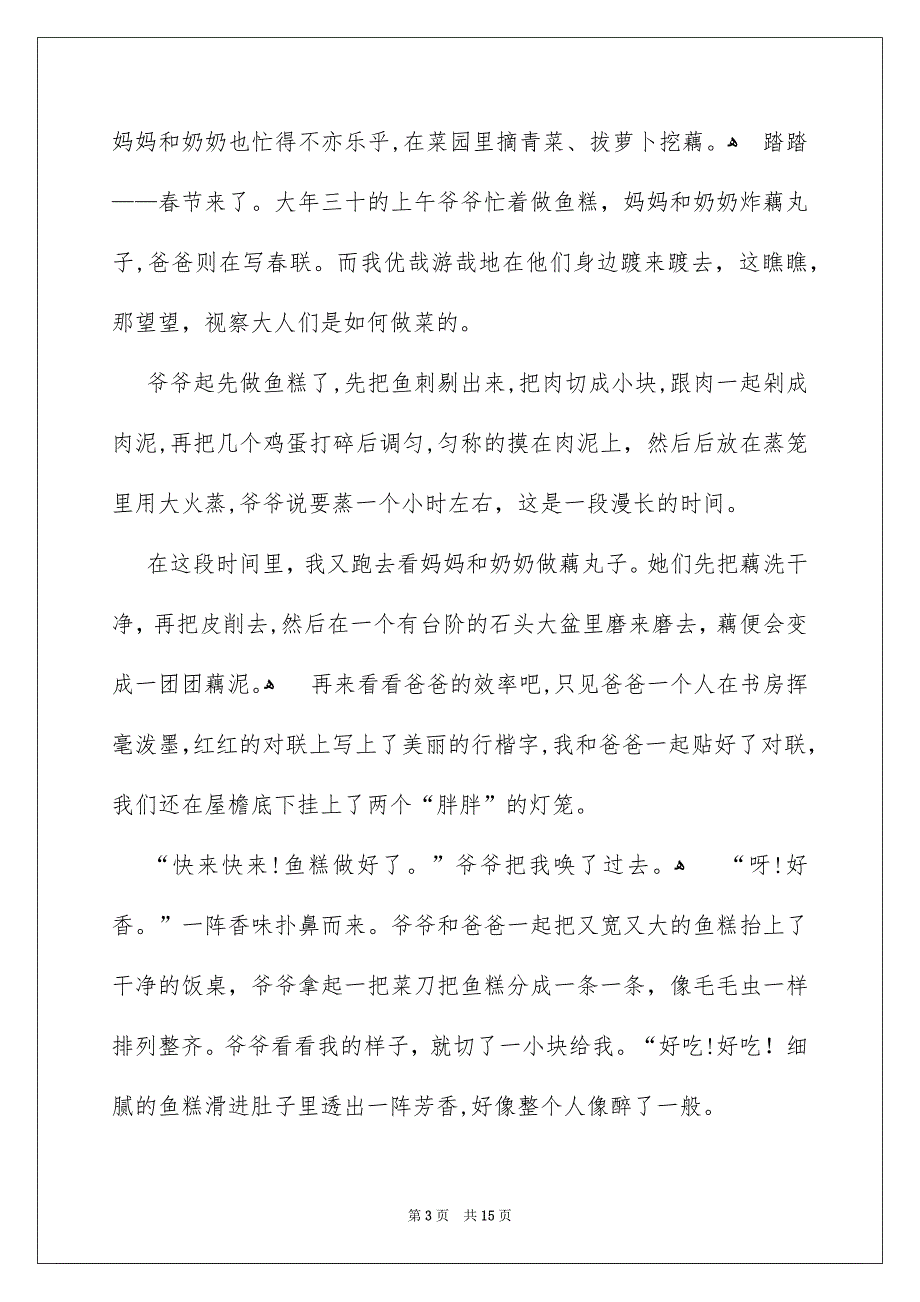 妈妈和奶奶也忙得不亦乐乎,在菜园里摘青菜、拔萝卜挖藕。ﻫ 踏踏
——春节来了。大年三十的上午爷爷忙着做鱼糕，妈妈和奶奶炸藕丸
子,爸爸则在写春联。而我优哉游哉地在他们身边踱来踱去，这瞧瞧,
那望望，视察大人们是如何做菜的。
爷爷起先做鱼糕了,先把鱼刺剔出来,把肉切成小块,跟肉一起剁成
肉泥,再把几个鸡蛋打碎后调匀,匀称的摸在肉泥上，然后后放在蒸笼
里用大火蒸,爷爷说要蒸一个小时左右，这是一段漫长的时间。
在这段时间里，我又跑去看妈妈和奶奶做藕丸子。她们先把藕洗干
净，再把皮削去,然后在一个有台阶的石头大盆里磨来磨去，藕便会变
成一团团藕泥。ﻫ 再来看看爸爸的效率吧,只见爸爸一个人在书房挥
毫泼墨,红红的对联上写上了美丽的行楷字,我和爸爸一起贴好了对联,
我们还在屋檐底下挂上了两个“胖胖”的灯笼。
“快来快来!鱼糕做好了。”爷爷把我唤了过去。ﻫ “呀!好
香。”一阵香味扑鼻而来。爷爷和爸爸一起把又宽又大的鱼糕抬上了
干净的饭桌，爷爷拿起一把菜刀把鱼糕分成一条一条，像毛毛虫一样
排列整齐。爷爷看看我的样子，就切了一小块给我。“好吃!好吃！细
腻的鱼糕滑进肚子里透出一阵芳香,好像整个人像醉了一般。
第 3 页 共 15 页